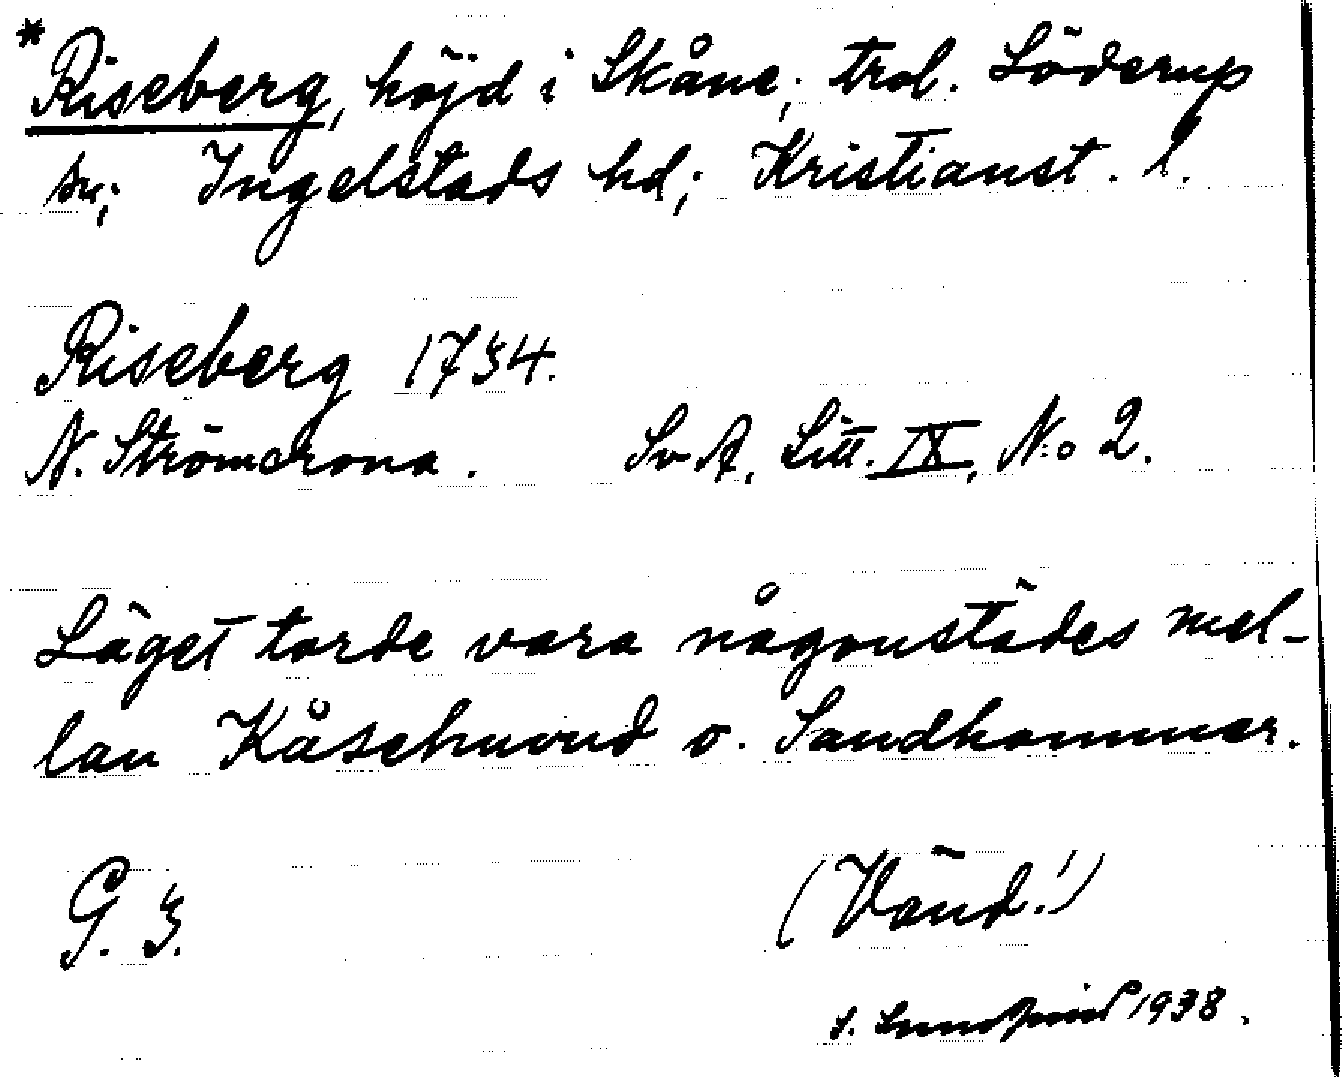 *Riseberg, höjd i Skåne; trol. Löderup
sn; Ingelstads hd; Kristianst. l.
Riseberg 1734.
N. Strömcrona. SvA, Litt. IX, No 2.
Läget torde vara någonstädes mel-
lan Kåsehuvud o. Sandhammar.
G. 3.
(Vänd!)
S. 1938.